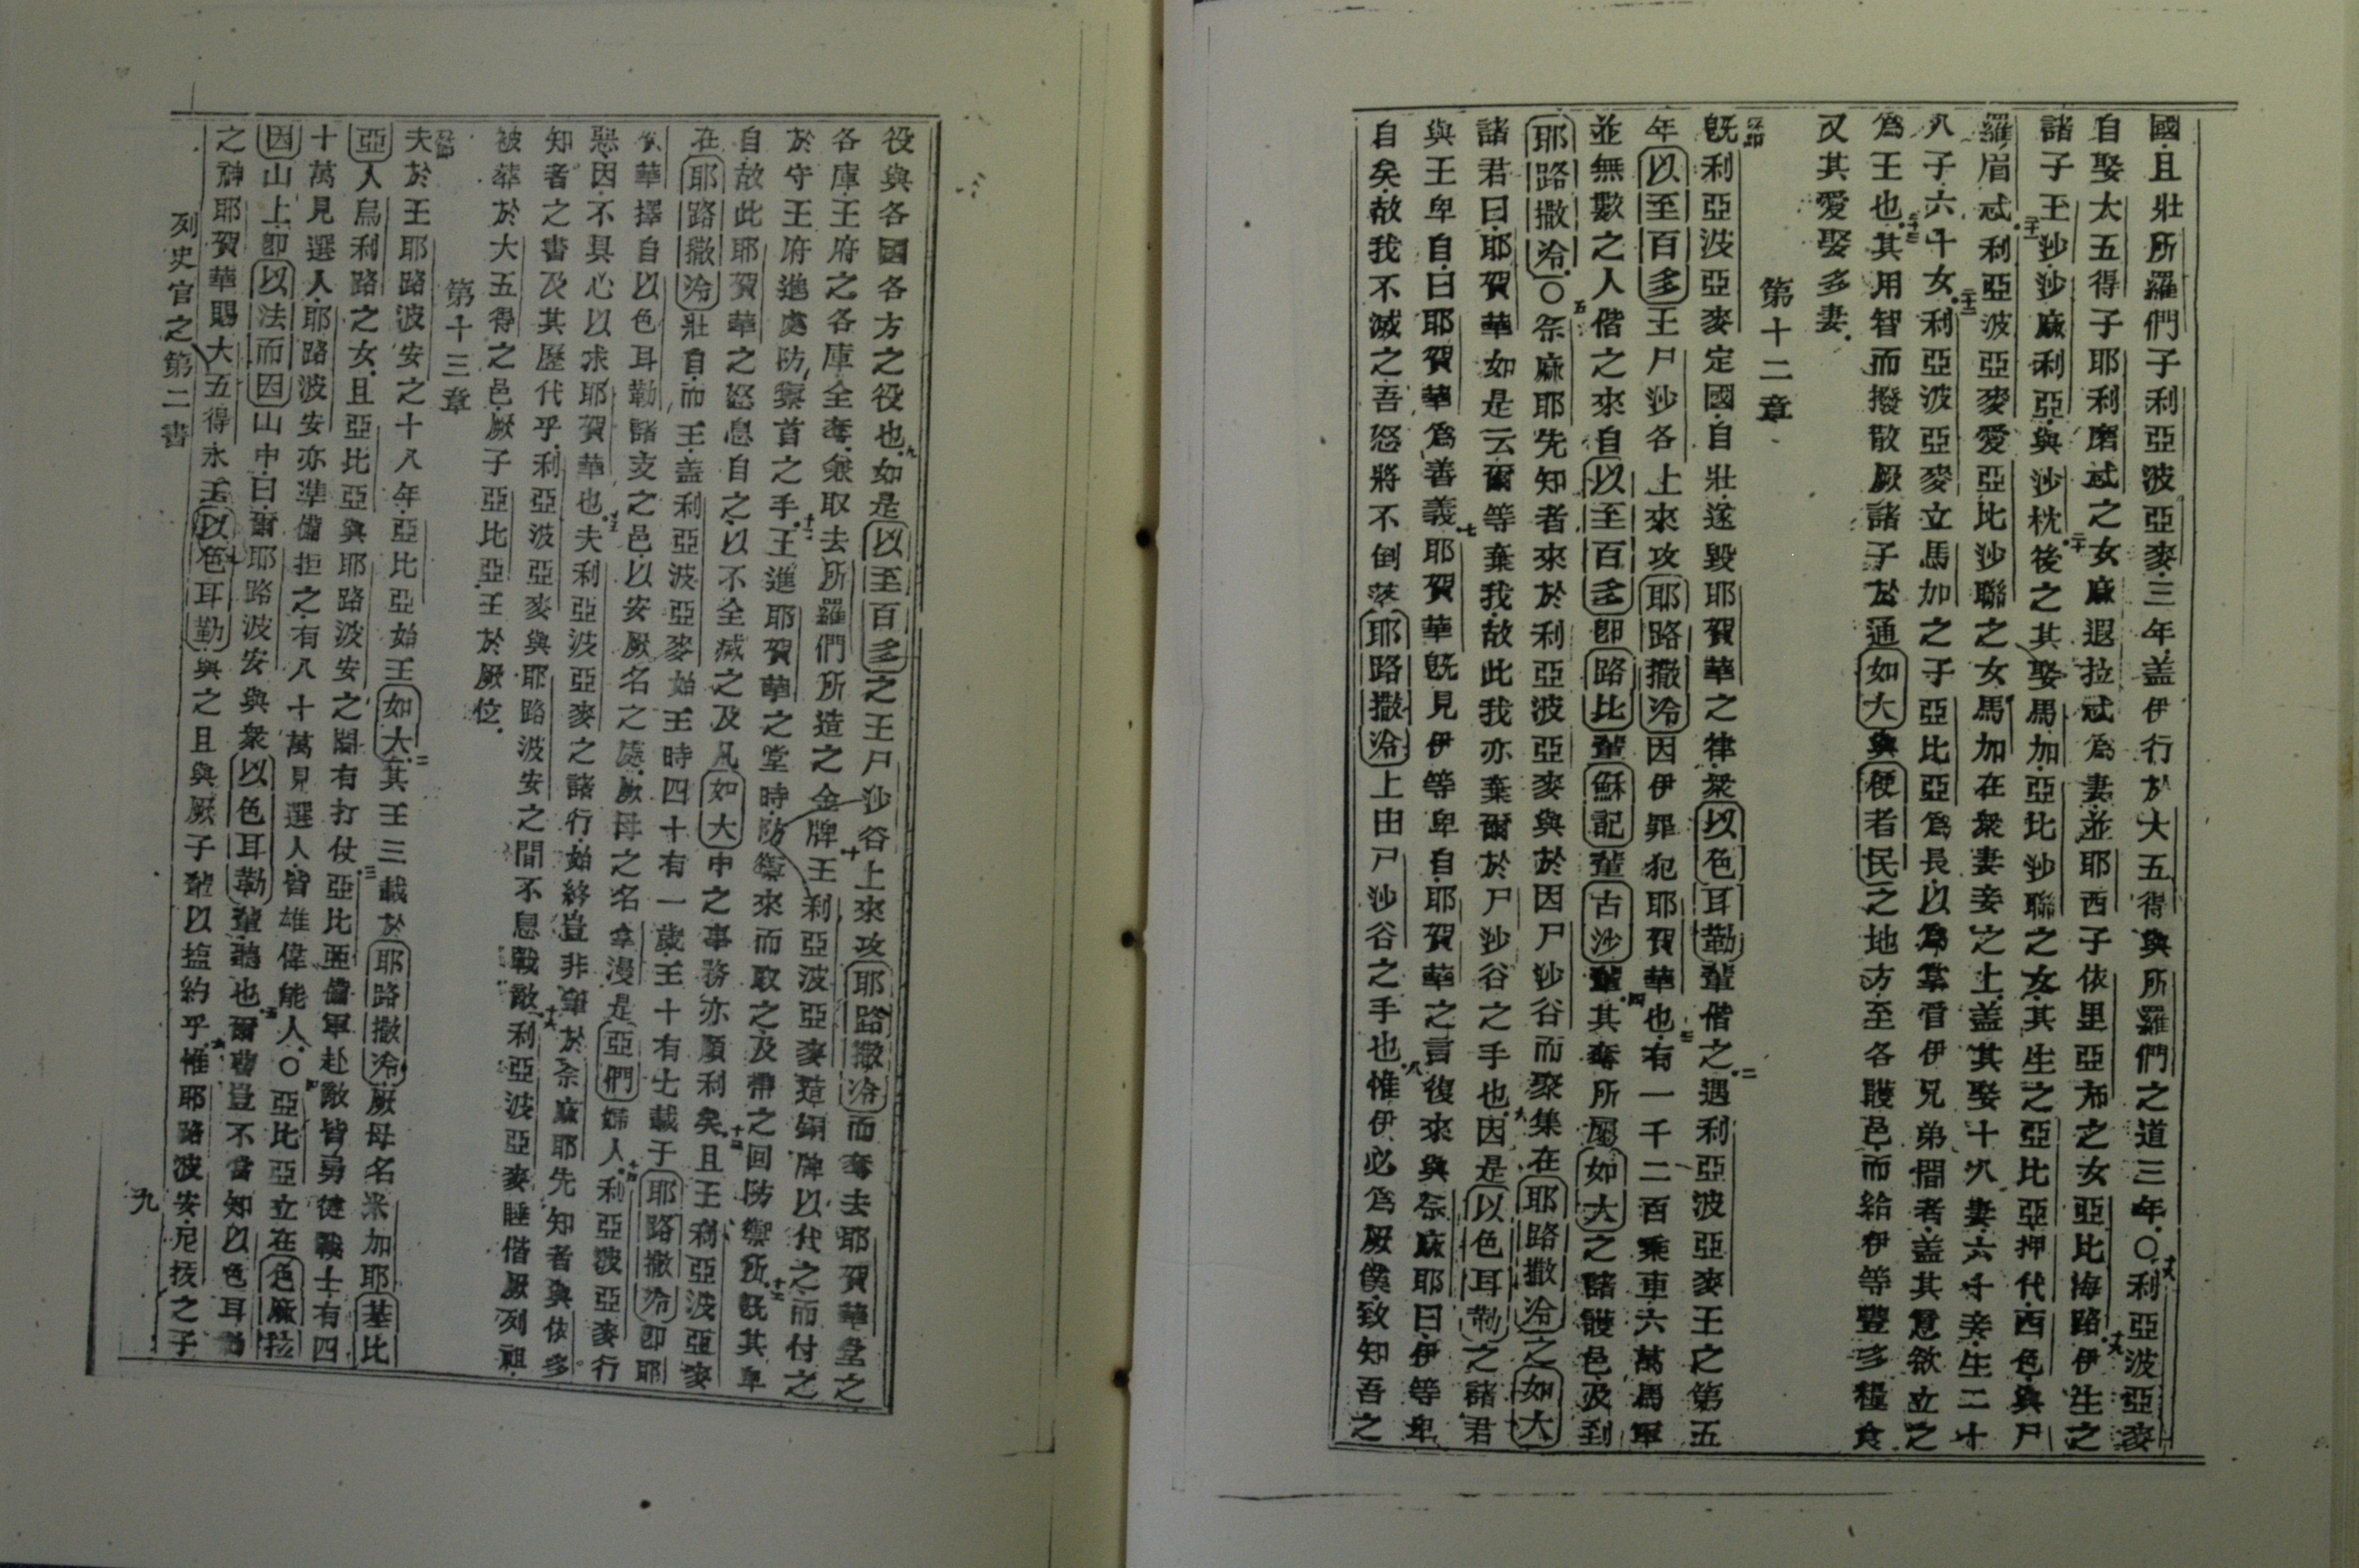 國.且壯所羅們子利亞波亞麥.三年.盖伊行於大五得與所羅們之道三年.〇利亞波亞麥
自娶大五得子耶利磨忒之女麻遐拉忒為妻.並耶西子依里亞布之女亞比海路.伊生之
諸子王沙.沙麻利亞.與沙枕.後之其娶馬加.亞比沙聯之女.其生之亞比亞.押代.西色.與尸
羅眉忒.利亞波亞麥愛亞比沙聯之女馬加在衆妻妾之上.盖其娶十八妻.六十妾.生二十
八子.六十女.利亞波亞麥立馬加之子亞比亞為長.以為掌管伊兄弟間者.盖其意欲立之
為王也.其用智而撥散厥諸子於通如大與便者民之地方.至各護邑.而給伊等豐多糧食
又其愛娶多妻.
第十二章
既利亞波亞麥定國.自壯.遂毀耶賀華之律.衆以色耳勒輩偕之.遇利亞波亞麥王之第五
年以至百多王尸沙谷上來攻耶路撒冷因伊罪犯耶賀華也.有一千二百乘車.六萬馬軍
並無數之人偕之來自以至百多即路比輩穌記輩古沙輩.其奪所屬如大之諸護邑.及到
耶路撒冷.〇尒麻耶先知者來於利亞波亞麥與於因尸沙谷而聚集在耶路撒冷之如大
諸君曰.耶賀華如是云.爾等棄我.故此我亦棄爾於尸沙谷之手也.因是以色耳勒之諸君
與王卑自曰.耶賀華為善義.耶賀華既見伊等卑自.耶賀華之言復來與尒麻耶曰.伊等卑
自矣.故我不滅之.吾怒將不倒落耶路撒冷上由尸沙谷之手也.惟伊必為厥僕.致知吾之
役與各國各方之役也.如是以至百多之王尸沙谷上來攻耶路撒冷而奪去耶賀華堂之
各庫.王府之各庫全奪.兼取去所羅們所造之金牌.王利亞波亞麥造銅牌以代之.而付之
於守王府進處防禦首之手.王進耶賀華之堂時.防禦來而取之.及帶之回防禦所.既其卑
自.故此耶賀華之怒息自之.以不全滅之.及凡如大中之事務亦順利矣.且王利亞波亞麥
在耶路撒冷壯自.而王.盖利亞波亞麥始王時四十有一歲.王十有七載于耶路撒冷即耶
賀華擇自以色耳勒諸支之邑.以安厥名之處.厥母之名拿漫.是亞們婦人.利亞波亞麥行
惡.因不具心以求耶賀華也.夫利亞波亞麥之諸行.始終豈非筆於尒麻耶先知者與依多
知者之書及其歷代乎.利亞波亞麥與耶路波安之間不息戰敵.利亞波亞麥睡偕厥列祖.
被葬於大五得之邑.厥子亞比亞.王於厥位.
第十三章
夫於王耶路波安之十八年.亞比亞始王如大.其王三載於耶路撒冷.厥母名米加耶基比
亞人烏利路之女.且亞比亞與耶路波安之間有打仗.亞比亞備軍赴敵.皆勇健戰士.有四
十萬見選人.耶路波安亦準備拒之.有八十萬見選人.皆雄偉能人.〇亞比亞立在色麻拉
因山上.即以法而因山中曰.爾耶路波安與衆以色耳勒輩.聽也.爾曹豈不當知以色耳勒
之神耶賀華賜大五得永王以色耳勒與之.且與厥子輩以塩約乎.惟耶路波安.尼抜之子
列史官之第二書
九